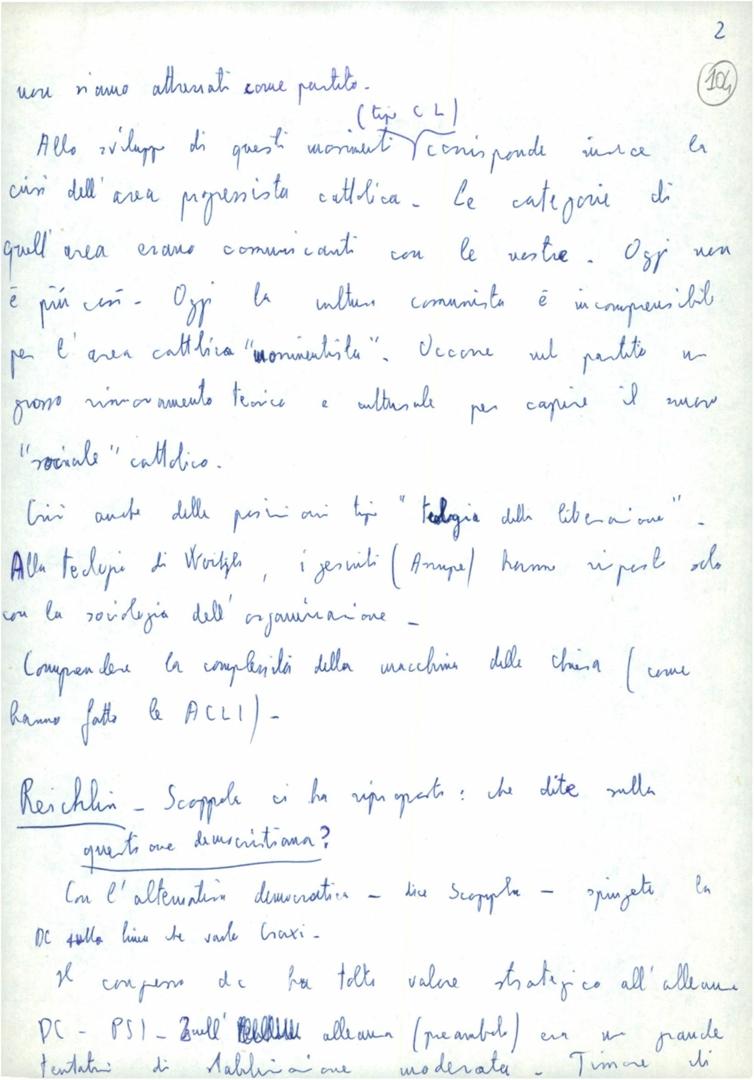 2
104
non siamo attrezzati come partito.
(tipo CL)
Allo sviluppo di questi movimenti corrisponde invece la
crisi dell'area progressista cattolica. Le categorie di
quell'area erano comunicanti con le nostre. Oggi non
è più così. Oggi la cultura comunista è incomprensibile
per l'area cattolica "movimentista". Occorre nel partito un
grosso rinnovamento teorico e culturale per capire il nuovo
"sociale" cattolico.
Crisi anche delle posizioni tipo "teologia della liberazione".
Alla teologia di Woityla, i gesuiti (Arrupe) hanno risposto solo
con la sociologia dell'organizzazione.
Comprendere la complessità della macchina della chiesa (come
hanno fatto le ACLI).
Reichlin - Scoppola ci ha riproposto: che dite sulla
questione democristiana?
Con l'alternativa democratica - dice Scoppola - spingete la
DC sulla linea che vuole Craxi.
Il congresso dc ha tolto valore strategico all'alleanza
DC - PSI - Quell' alleanza (preambolo) era un grande
tentativo di stabilizzazione moderata. Timore di